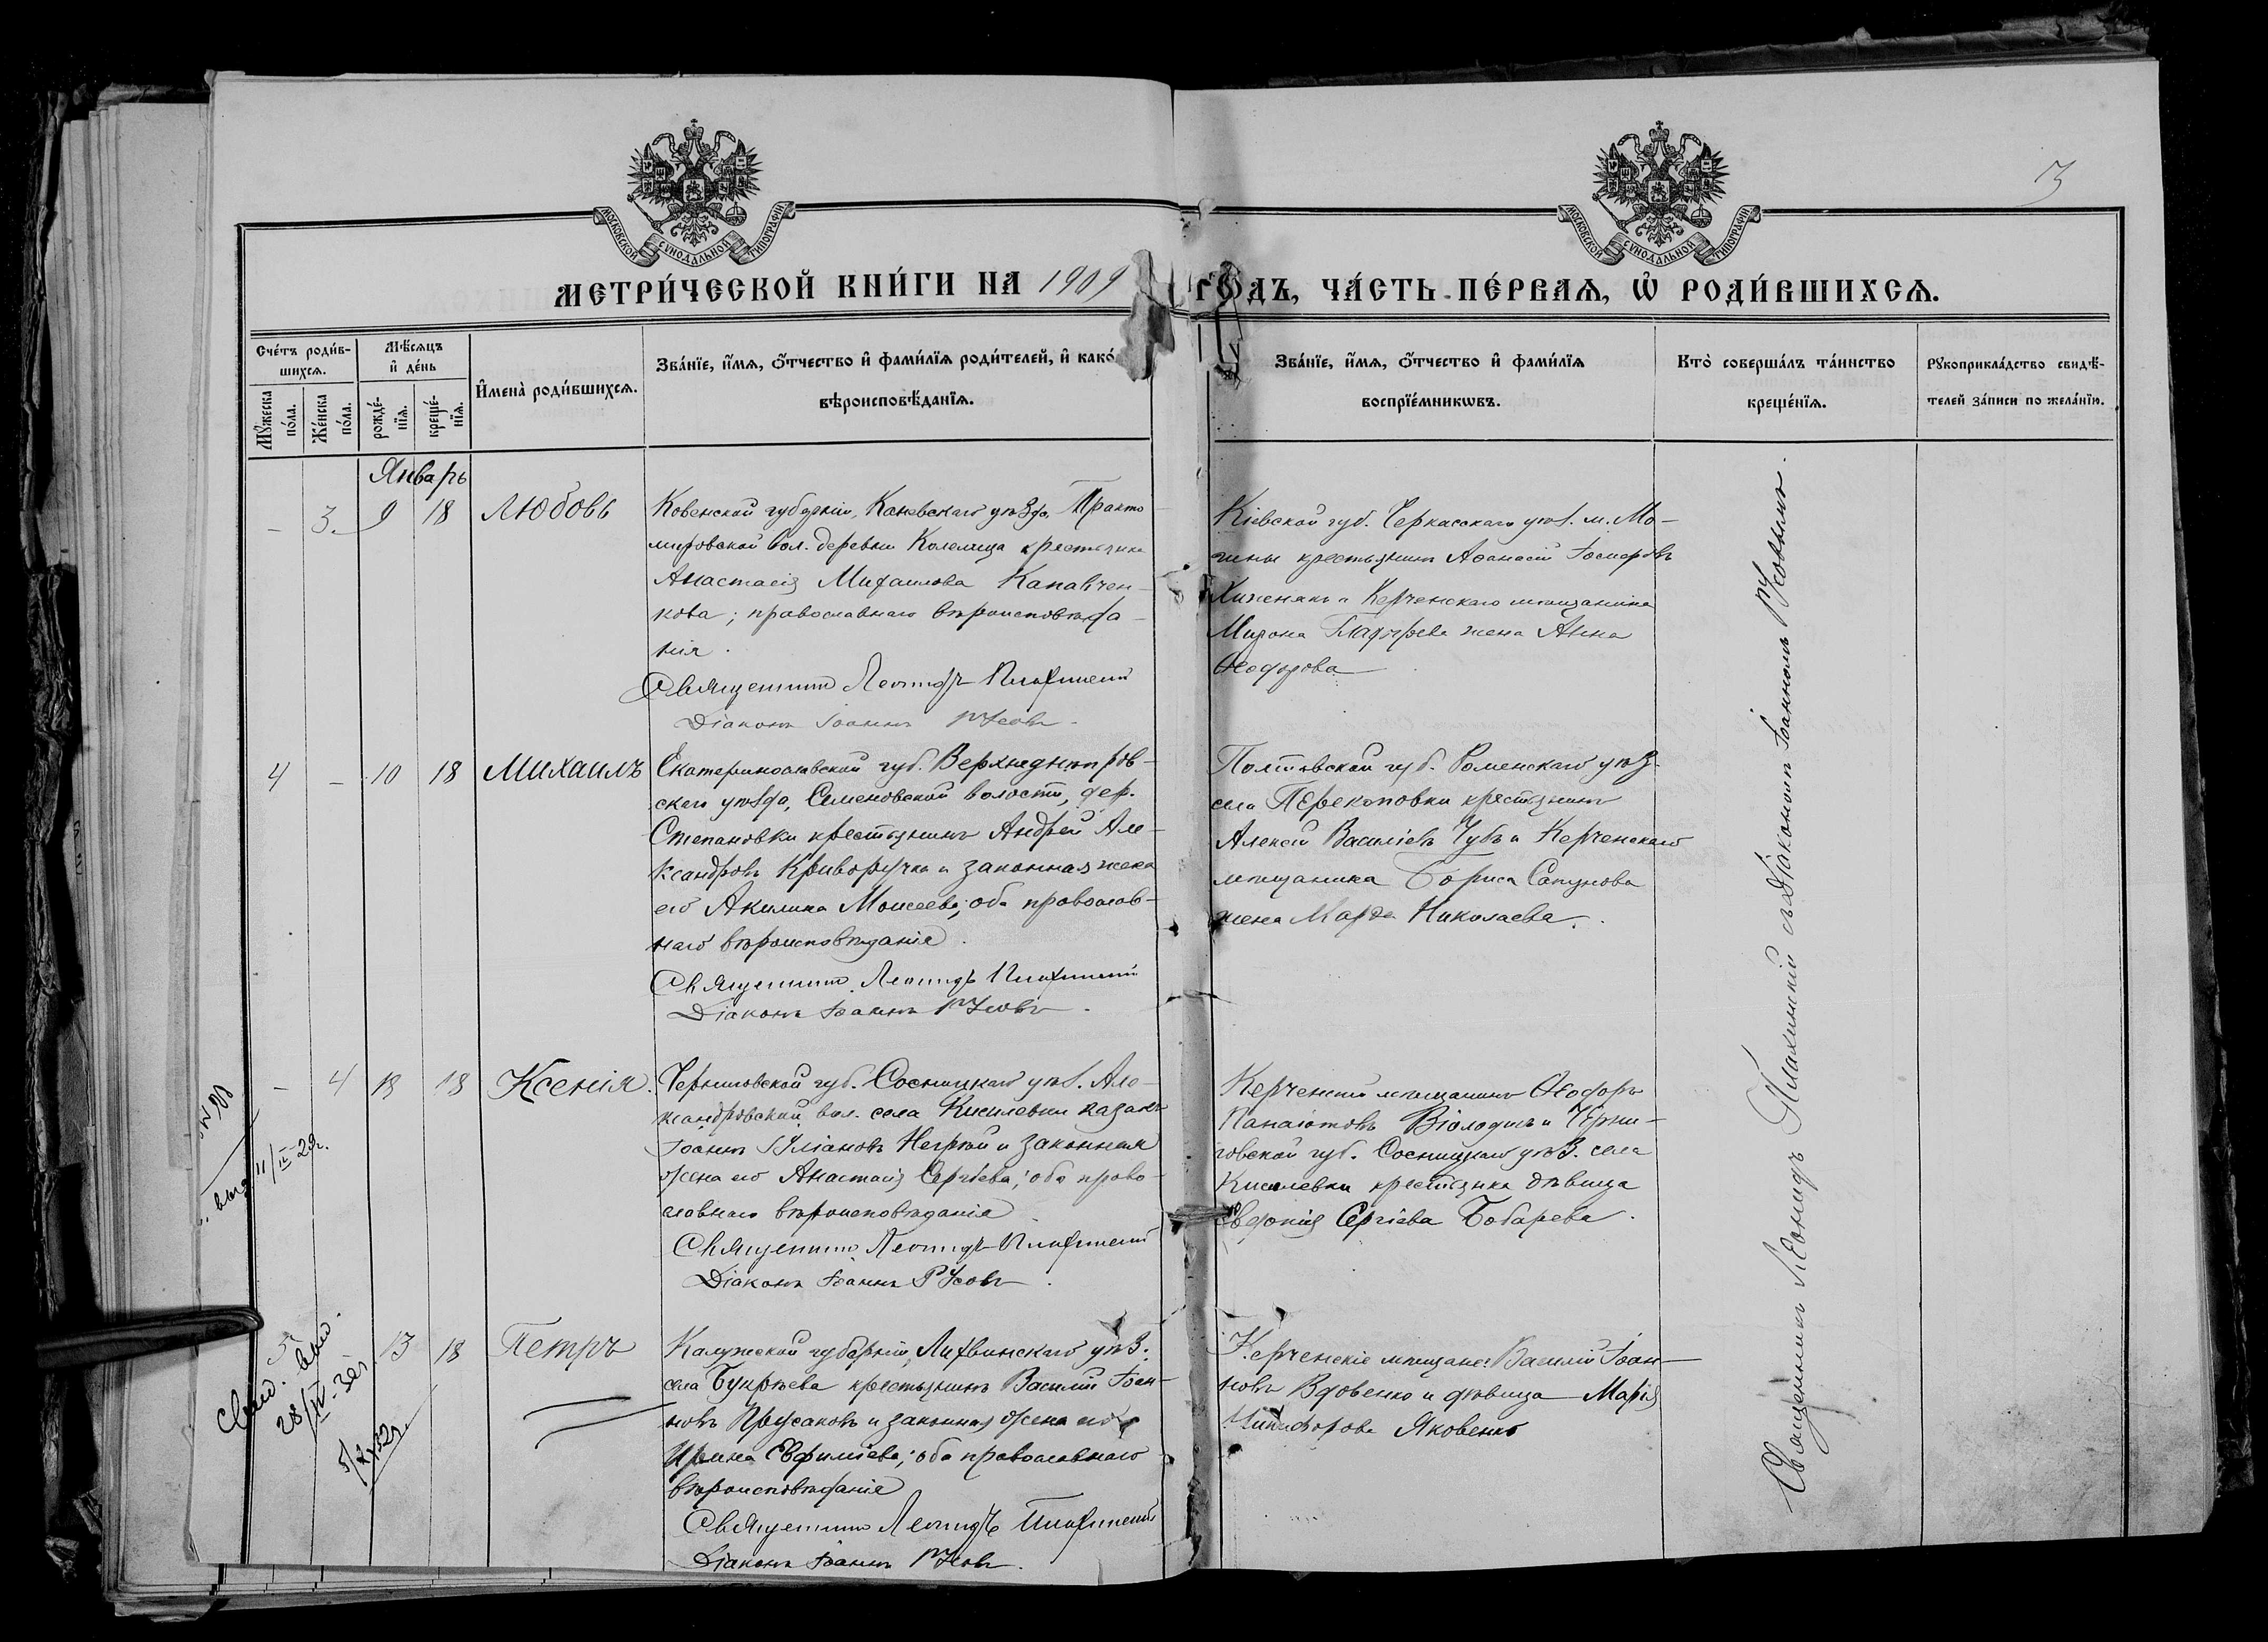 3
МОСКОВСКОЙ СУНОДАЛЬНОЙ ТИПОГРАФІИ
МОСКОВСКОЙ СУНОДАЛЬНОЙ ТИПОГРАФІИ
МЕТРИ́ЧЕСКОЙ КНИ́ГИ НА 1909 ГОДЪ, ЧА́СТЬ ПЕ́РВАЯ, Ѡ РОДИ́ВШИХСЯ.
Сче́тъ роди́в-
шихся.
Мꙋ́жеска по́ла.
Же́нска по́ла.
Мѣ́сяцъ и҆ де́нь
рожде́-нїя.
креще́-нїя.
И҆мена̀ роди́вшихся.
Зва́нїе, и҆́мя, ѻ҆́тчество и҆ фами́лїя роди́телей, и҆ како́
вѣроисповѣ́данїя.
Зва́нїе, и҆́мя, ѻ҆́тчество и҆ фами́лїя
воспрїе́мникѡвъ.
Кто̀ соверша́лъ та́инство
креще́нїя.
Рꙋкоприкла́дство свидѣ́-
телей за́писи по жела́нїю.
Январь
– 3. 9 18 Любовь
Ковенской губерніи, Каневскаго уѣзда, Тракто
мировской вол. деревни Колесища крестьянка
Анастасія Михаилова Капавчен-
кова; православнаго вѣроисповѣда-
нія.
Священникъ Леонидъ Плахинскій
Діаконъ Іоаннъ Русовъ
Кіевской губ. Черкасскаго уѣз. м. Мо-
шны крестьянинъ Аѳанасій
Хиженякъ и Керченскаго мѣщанина
Мирона жена Анна
Ѳеодорова
4 – 10 18 Михаилъ
Екатеринославской губ. Верхнеднѣпров-
скаго уѣзда, Семеновской волости, дер.
Степановки крестьянинъ Андрей Але-
ксандровъ Криворучка и законная жена
его Акилина Моисеева; оба православ-
наго вѣроисповѣданія.
Священникъ Леонидъ Плахинскій
Діаконъ Іоаннъ Русовъ.
Полтавской губ. Роменскаго уѣз.
села Перекоповки крестьянинъ
Алексій Василіевъ Чубъ и Керченскаго
мѣщанина Бориса Сапунова
жена Марѳа Николаева.
– 4 13 18 Ксенія.
Черниговской губ. Сосницкаго уѣз. Але-
ксандровской вол. села Киселевки казакъ
Іоаннъ Іуліановъ Негрѣй и законная
жена его Анастасія Сергіева; оба право-
славнаго вѣроисповѣданія
Священникъ Леонидъ Плахинскій
Діаконъ Іоаннъ Русовъ.
Керченскій мѣщанинъ Ѳеодоръ
Панаіотовъ Віолодисъ и Черни-
говской губ. Сосницкаго уѣз. села
Киселевки крестьянка дѣвица
Евдокія Сергіева Бобарева.
11/IV-29г.
5 13 18 Петръ
Калужской губерніи, Лихвинскаго уѣз.
села Букрѣева крестьянинъ Василій Іоан-
новъ Прусаковъ и законная жена его
Ирина Евфиміева; оба православнаго
вѣроисповѣданія
Священникъ Леонидъ Плахинскій
Діаконъ Іоаннъ Русовъ.
Керченскіе мѣщане: Василій Іоан-
новъ Вдовенко и дѣвица Марія
Никифорова Яковенко
28/IV-30г
5/X 32г
Священникъ Леонидъ Плахинскій съ діакономъ Іоанномъ Русовымъ.